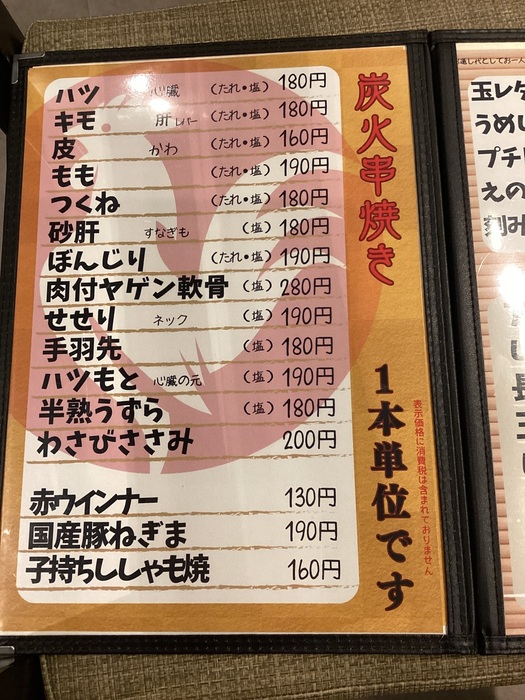 炭火串焼き
ハツ 心臓 （たれ・塩） 180円
キモ 肝 レバー （たれ・塩） 180円
皮 かわ （たれ・塩） 160円
もも （たれ・塩） 190円
つくね （たれ・塩） 180円
砂肝 すなぎも （塩） 180円
ぼんじり （たれ・塩） 190円
肉付ヤゲン軟骨 （塩） 280円
せせり ネック （塩） 190円
手羽先 （塩） 180円
ハツもと 心臓の元 （塩） 190円
半熟うずら （塩） 180円
わさびささみ 200円
赤ウインナー 130円
国産豚ねぎま 190円
子持ちししゃも焼 160円
1本単位です
表示価格に消費税は含まれておりません
玉レタ
うめし
プチ
えの
刻み